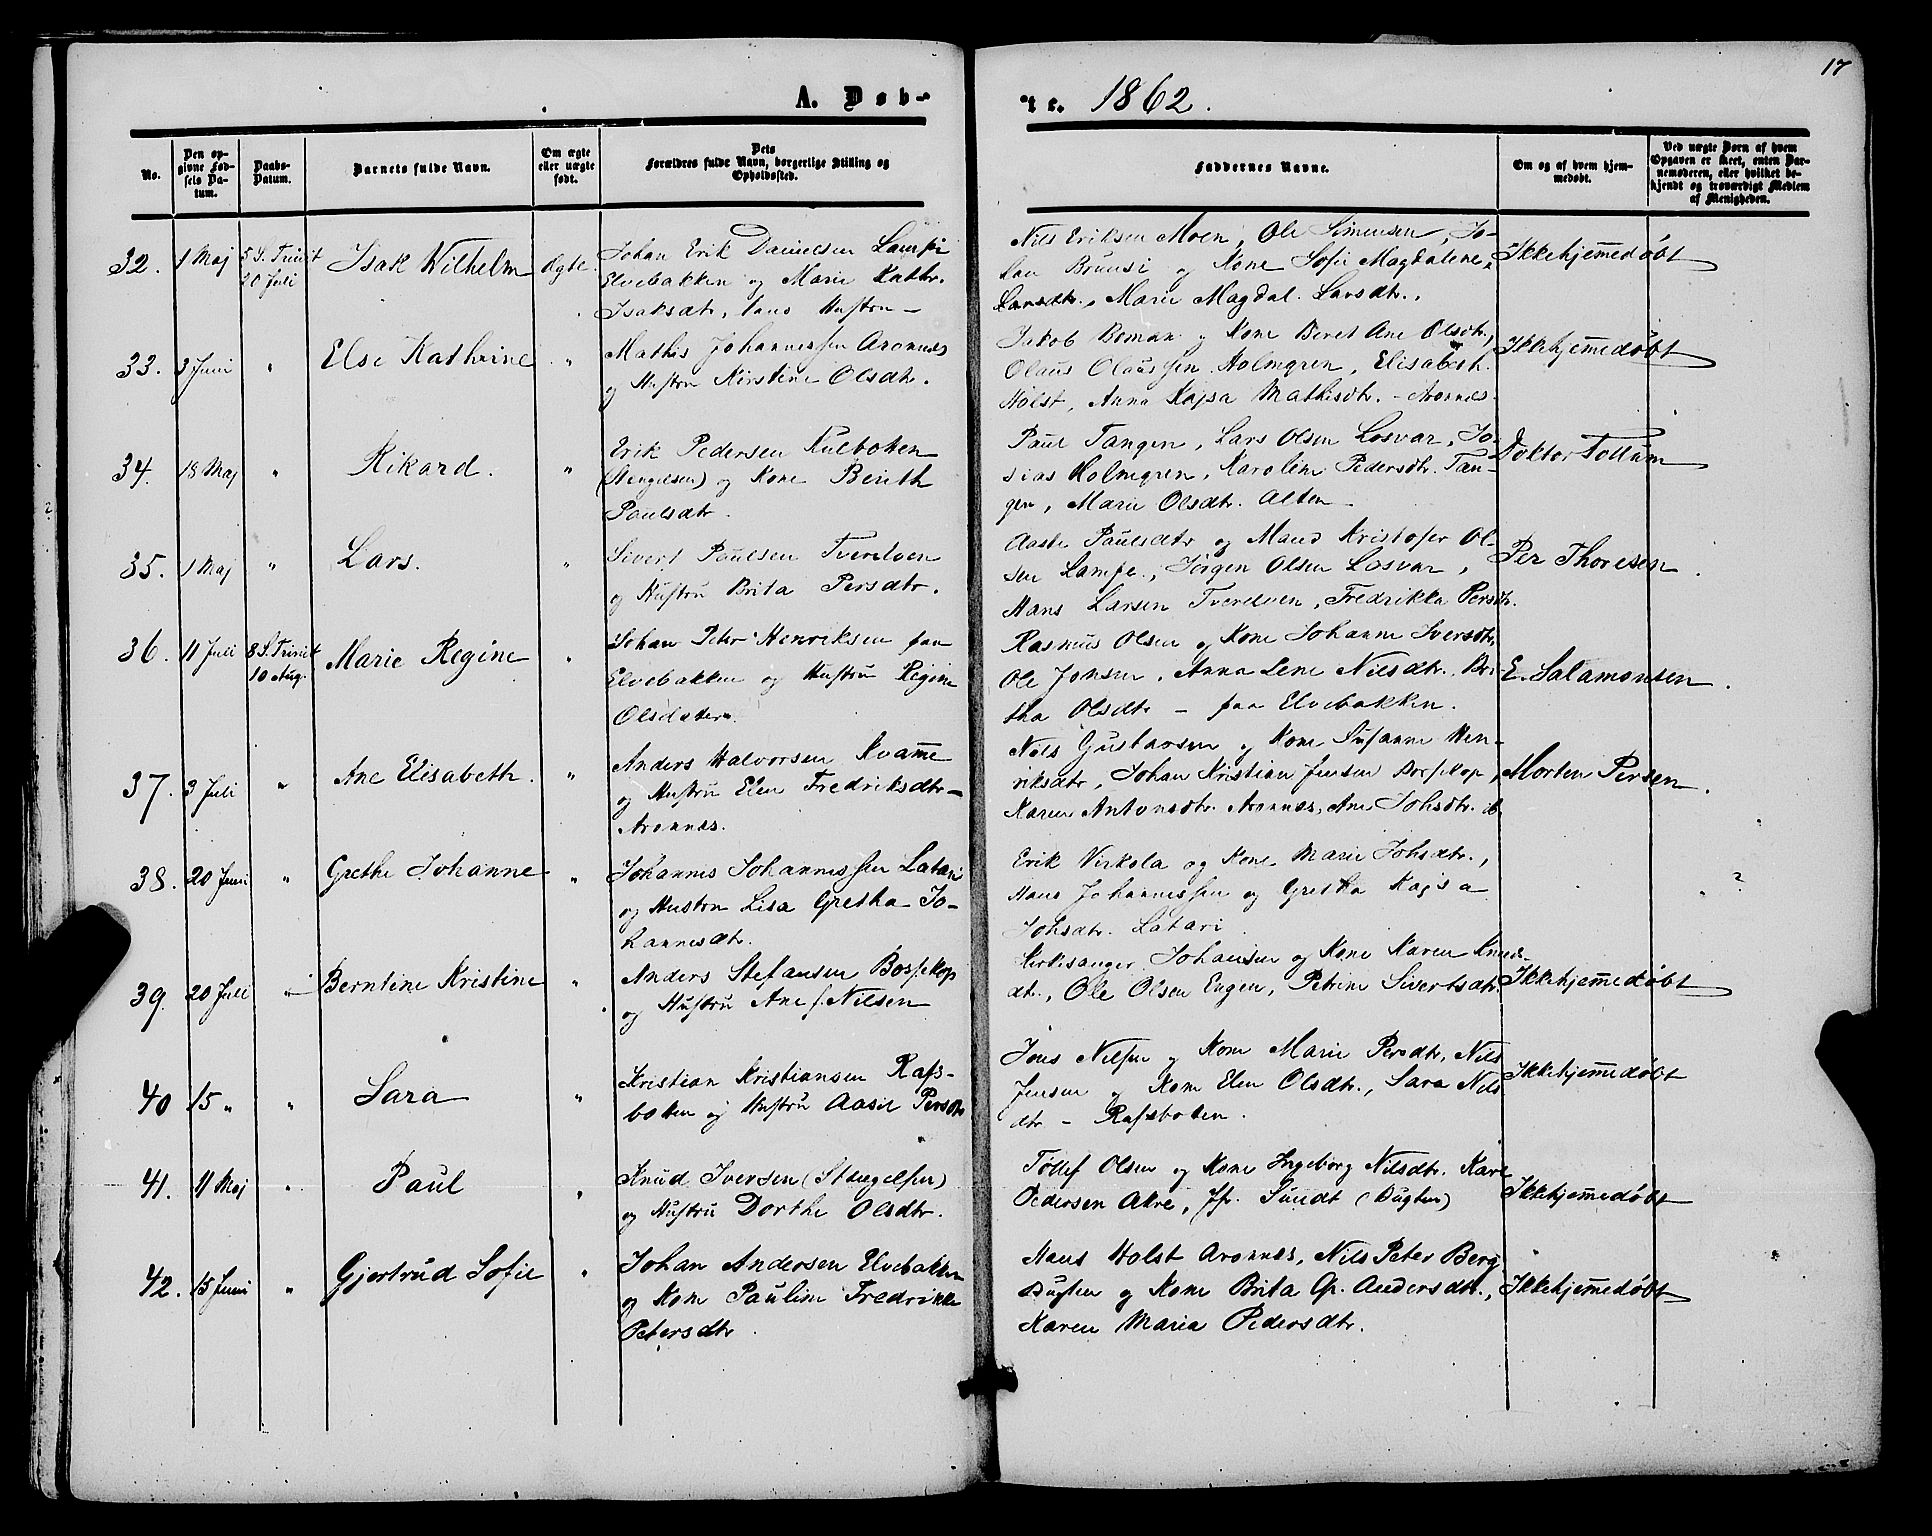 17
A. Døb-
te. 1862.
No.
Den opgivne Fødsels Datum.
Daabs-Datum.
Barnets fulde Navn.
Om ægte eller uægte født.
Dets Forældres fulde Navn, borgerlige Stilling og Opholdssted.
Faddernes Navne.
Om og af hvem hjemmedøbt.
Ved uægte Børn af hvem Opgaven er skeet, enten Barnemoderen, eller hvilket bekjendt og troværdigt Medlem af Menigheden.
32. 1 Maj 5 S. Trinit 20 Juli Isak Wilhelm Ægte
Johan Erik Danielsen Lampi
Elvebakken og Marie Kathr.
Isaksdtr, hans Hustru –
Nils Eriksen Moen, Ole Simensen, Jo-
han Bruusi og Kone Sofie Magdalene
Larsdtr., Marie Magdal. Larsdtr.,
Ikkehjemmedøbt
33. 3 Juni " Else Kathrine "
Mathis Johannessen Aronnes
og Hustru Kirstine Olsdtr.
Jakob Boman og Kone Beret Ane Olsdtr,
Olaus Olaussen Holmgren, Elisabeth
Holst, Anna Kajsa Mathisdtr. – Aronnes
Ikkehjemmedøbt
34. 18 Maj " Rikard. "
Erik Pedersen Kulboken
(Stengelsen) og Kone Berith
Paulsdtr.
Paul Tangen, Lars Olsen Losvar, Jo-
sias Holmgren, Karoline Pedersdtr. Tan-
gen, Marie Olsdtr. Alten
Doktor Tollum
35. 1 Maj " Lars. "
Sivert Paulsen Tverelven
og Hustru Brita Persdtr.
Aaste Paulsdtr og Mand Kristofer Ol-
sen Lampe, Jørgen Olsen Losvar,
Hans Larsen Tverelven, Fredrikka Persdtr.
Per Thoresen.
36. 11 Juli 8 S. Trinit 10 Aug. Marie Regine "
Johan Peter Henriksen paa
Elvebakken og Hustru Regine
Olsdatter.
Rasmus Olsen og Kone Johanne Iversdtr,
Ole Jonsen, Anna Lene Nilsdtr. Bri-
tha Olsdtr – paa Elvebakken.
E. Salamonsen.
37. 3 Juli " Ane Elisabeth. "
Anders Halvorsen Kvamme
og Hustru Elen Fredriksdtr –
Aronnes.
Nils Gustavsen og Kone Susanne Hen-
riksdtr, Johan Kristian Jensen Bossekop,
Karen Antonsdtr. Aronnes, Ane Johsdtr. ib.
Morten Persen.
38. 20 Juni " Grethe Johanne "
Johannes Johannessen Latari
og Hustru Lisa Gretha Jo-
hannesdtr.
Erik Virkola og Kone Marie Johsdtr.,
Hans Johannessen og Gretha Kajsa
Johsdtr. Latari
?
39. 20 Juli " Berntine Kristine "
Anders Stefansen Bossekop
og Hustru Ane f. Nilsen
Kirkesanger Johansen og Kone Karen Knuds-
dtr., Ole Olsen Engen, Petrine Sivertsdtr
Ikkehjemmedøbt
40 15 " " Sara "
Kristian Kristiansen Rafs-
botten og Hustru Aasil Persdtr
Jons Nilsen og Kone Marie Persdtr, Nils
Jensen og Kone Elen Olsdtr., Sara Nils
dtr – Rafsbotten.
Ikkehjemmedøbt
41. 11 Maj " Paul "
Knud Iversen (Stengelsen)
og Hustru Dorthe Olsdtr.
Tollef Olsen og Kone Ingeborg Nilsdtr. Kare
Pedersen Akre, Fr. Sundt (Bugten)
Ikkehjemmedøbt
42. 15 Juni " Gjertrud Sofie "
Johan Andersen Elvebakken
og Kone Pauline Fredrikke
Petersdtr.
Hans Holst Aronnes, Nils Peter Berg
Bugten og Kone Brita Gr. Andersdtr.,
Karen Maria Pedersdtr.
Ikkehjemmedøbt